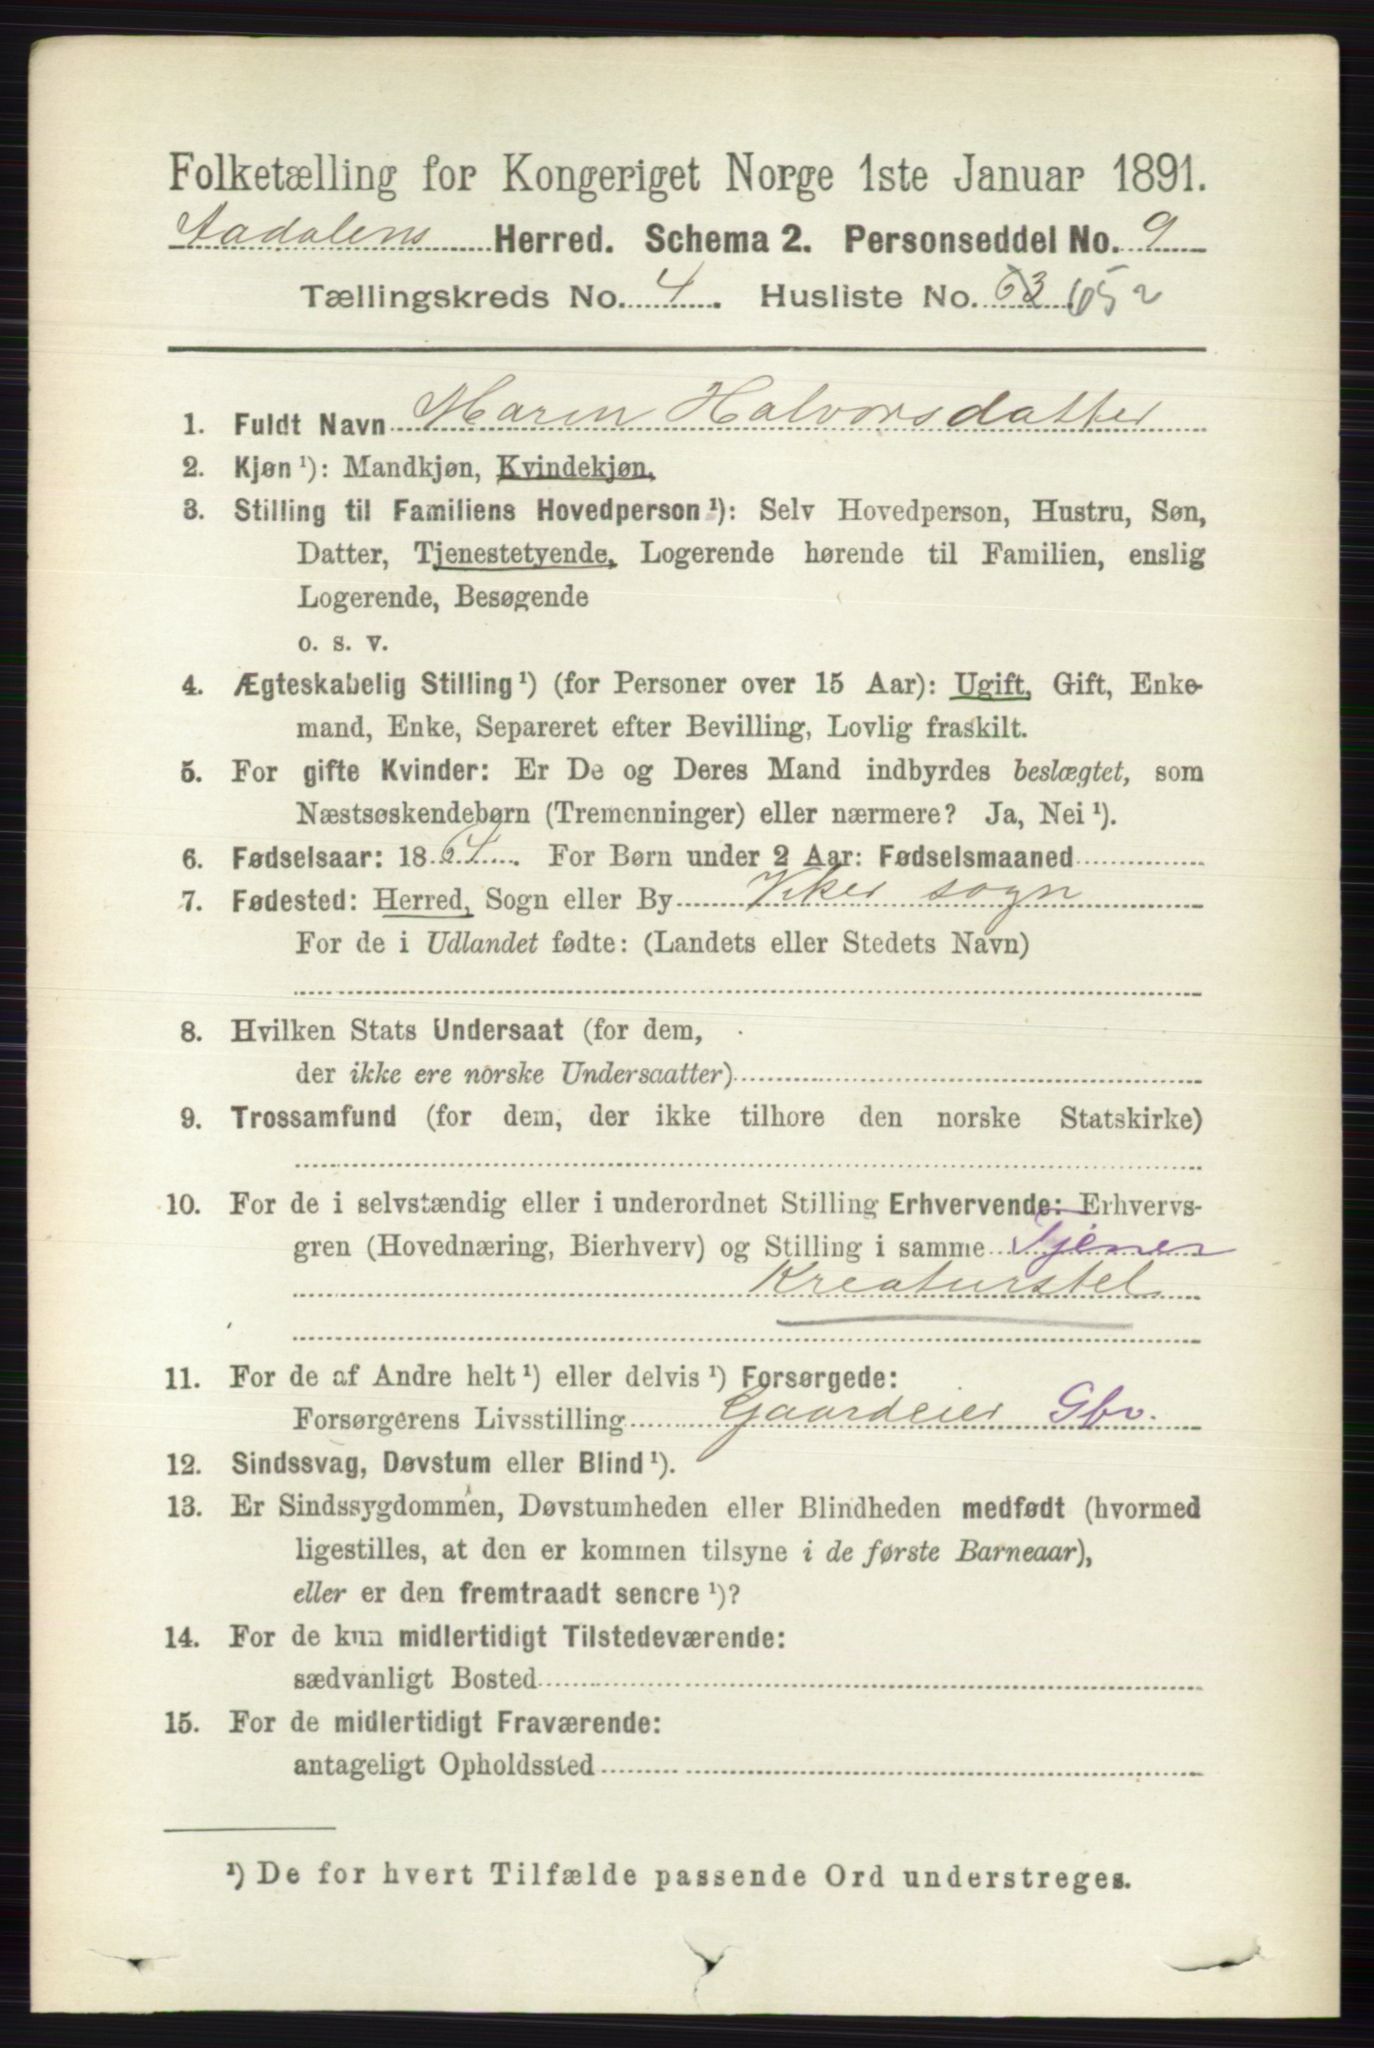 Folketælling for Kongeriget Norge 1ste Januar 1891.
Aadalens Herred. Schema 2. Personseddel No. 9
Tællingskreds No. 4. Husliste No. 63 65 2
1. Fuldt Navn Maren Halvorsdatter
2. Kjøn ¹): Mandkjøn, Kvindekjøn.
3. Stilling til Familiens Hovedperson ¹): Selv Hovedperson, Hustru, Søn,
Datter, Tjenestetyende, Logerende hørende til Familien, enslig
Logerende, Besøgende
o. s. v.
4. Ægteskabelig Stilling ¹) (for Personer over 15 Aar): Ugift, Gift, Enke-
mand, Enke, Separeret efter Bevilling, Lovlig fraskilt.
5. For gifte Kvinder: Er De og Deres Mand indbyrdes beslægtet, som
Næstsøskendebørn (Tremenninger) eller nærmere? Ja, Nei ¹).
6. Fødselsaar: 1864. For Børn under 2 Aar: Fødselsmaaned
7. Fødested: Herred, Sogn eller By Viker sogn
For de i Udlandet fødte: (Landets eller Stedets Navn)
8. Hvilken Stats Undersaat (for dem,
der ikke ere norske Undersaatter)
9. Trossamfund (for dem, der ikke tilhøre den norske Statskirke)
10. For de i selvstændig eller i underordnet Stilling Erhvervende: Erhvervs-
gren (Hovednæring, Bierhverv) og Stilling i samme Tjener
Kreaturstel
11. For de af Andre helt ¹) eller delvis ¹) Forsørgede:
Forsørgerens Livsstilling Gaardeier Gbr.
12. Sindssvag, Døvstum eller Blind ¹).
13. Er Sindssygdommen, Døvstumheden eller Blindheden medfødt (hvormed
ligestilles, at den er kommen tilsyne i de første Barneaar),
eller er den fremtraadt senere ¹)?
14. For de kun midlertidigt Tilstedeværende:
sædvanligt Bosted
15. For de midlertidigt Fraværende:
antageligt Opholdssted
¹) De for hvert Tilfælde passende Ord understreges.